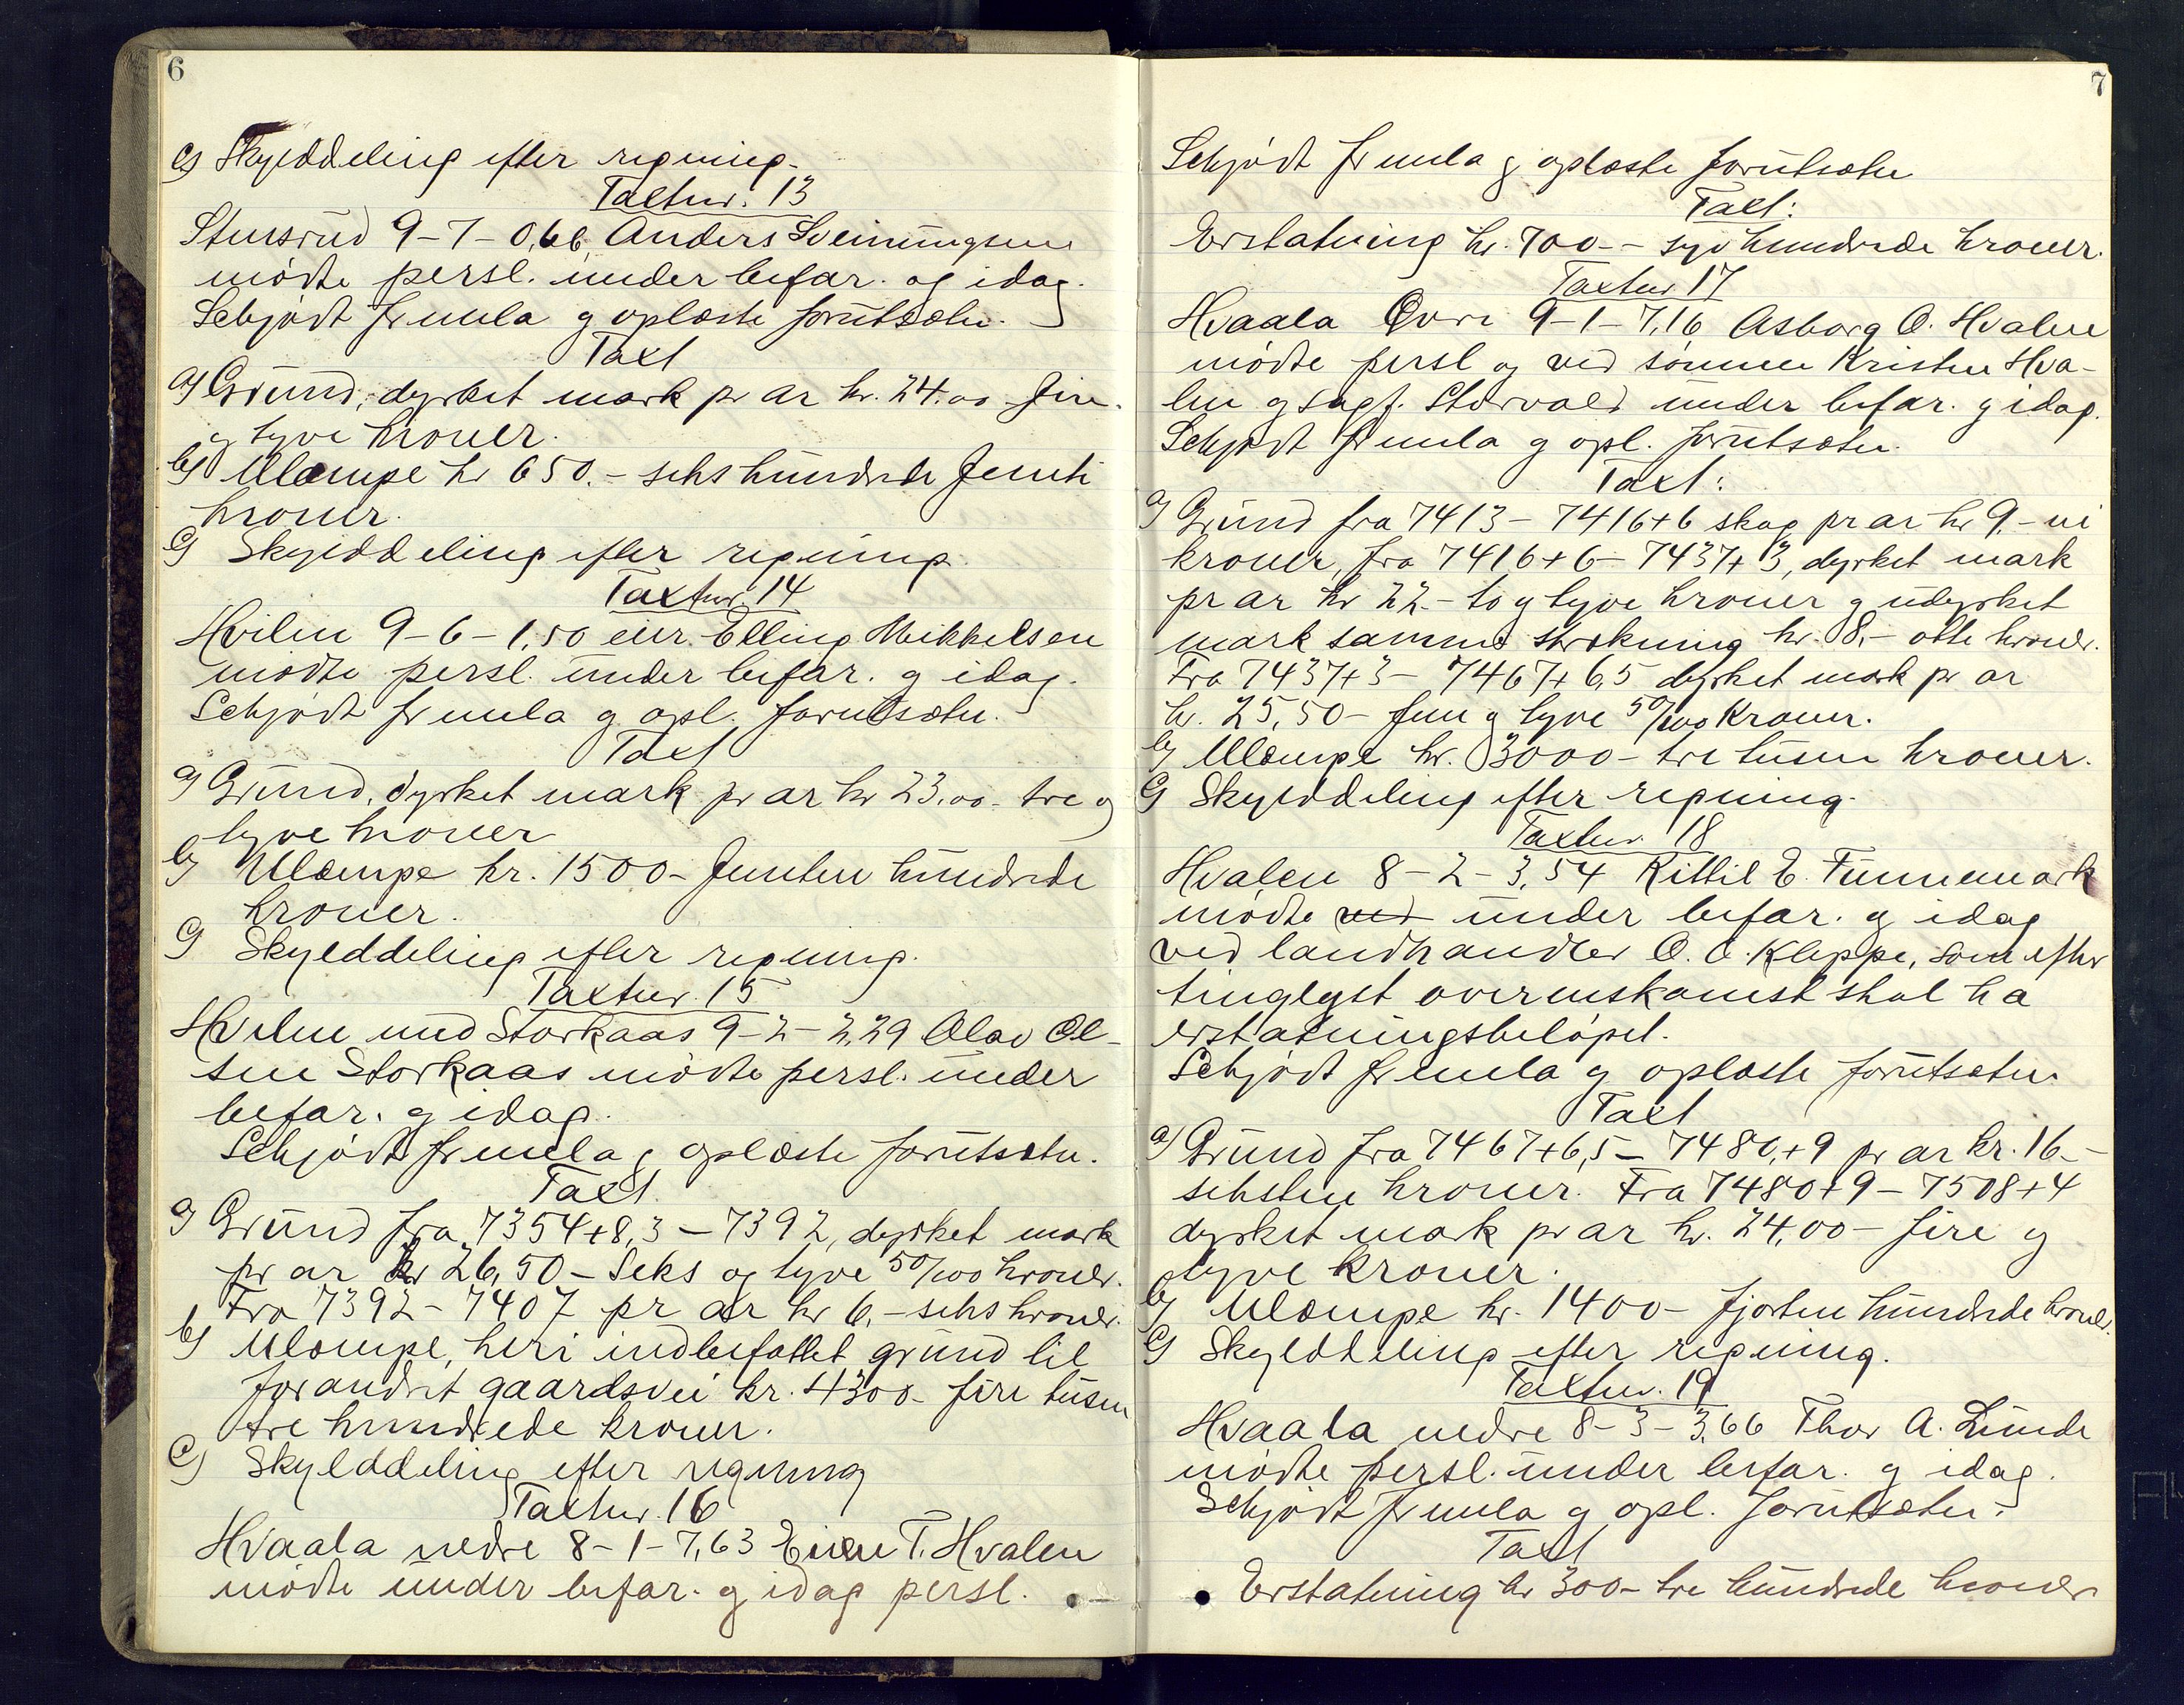 6
c) Skylddeling efter regning.
Taxtnr. 13
Stusrud 9-7-0,66 Anders Sveinungsen
mödte persl. under befar. og idag.
Schjödt fremla g oplæste forutsetn.
Taxt
a) Grund, dyrket mark pr ar kr. 24.00 fire
og tyve kroner.
b) Ulæmpe kr 650.- seks hundrede femti
kroner.
c) Skylddeling efter regning
Taxtnr. 14
Hvilen 9-6-1,50 eier Elling Mikkelsen
mödte persl. under befar. g idag.
Schjödt fremla g opl. forutsætn.
Taxt
a) Grund, dyrket mark pr ar kr 23.00- tre og
tyve kroner
b) Ulæmpe kr. 1500- femten hundrede
kroner.
c) Skylddeling efter regning.
Taxtnr. 15
Hvilen med Storkaas 9-2-2,29 Olav Ol-
sen Storkaas mödte persl. under
befar. g idag.
Schjödt fremla g oplæste forutsætn.
Taxt
a) Grund fra 7354+8,3 - 7392, dyrket mark
pr ar kr 26,50 - Seks og tyve 50/100 kroner.
Fra 7392 - 7407 pr ar kr 6,- seks kroner.
b) Ulæmpe, heri indbefattet grund til
forandret gaardsvei kr. 4300- fire tusen
tre hundrede kroner.
c) Skylddeling efter regning
Taxtnr. 16
Hvaala nedre 8-1-7,63 T. Hvalen
mödte under befar. g idag persl.
7
Schjödt fremla g oplæste forutsætn
Taxt:
Erstatning kr. 700.- syv hundrede kroner.
Taxtnr 17
Hvaala Övre 9-1-7,16 Asborg O. Hvalen
mödte persl og ved sönnen Kristen Hva-
len g sagf. Storvald under befar. g idag.
Schjödt fremla g opl. forutsætn.
Taxt:
a) Grund fra 7413 - 7416+6 skog pr ar kr 9.- ni
kroner, fra 7416+6 - 7437+3, dyrket mark
pr ar kr 22.- to g tyve kroner g udyrket
mark samme strekning kr. 8,- otte kroner.
Fra 7437+3 - 7467+6,5 dyrket mark pr ar
kr. 25,50 - fem g tyve 50/100 Kroner.
b) Ulæmpe kr. 3000 - tre tusen kroner.
c) Skylddeling efter regning.
Taxtnr. 18
Hvalen 8-2-3,54 Kittil E. Funnemark
mödte ved under befar. g idag
ved landhandler O. O. Kleppe, som efter
tinglyst overenskomst skal ha
erstatningsbelöpet.
Schjödt fremla g oplæste forutsætn.
Taxt
a) Grund fra 7467+6,5 - 7480,+9 pr ar kr. 16.-
seksten kroner. Fra 7480+9 - 7508+4
dyrket mark pr ar kr. 24,00 - fire g
tyve kroner.
b) Ulæmpe kr. 1400 - fjorten hundrede kroner.
c) Skylddeling efter regning.
Taxtnr. 19
Hvaala nedre 8-3-3,66 Thor A. Lunde
mödte persl. under befar. g idag.
Schjödt fremla g opl. forutsætn.
Taxt
Erstatning kr 300- tre hundrede kroner